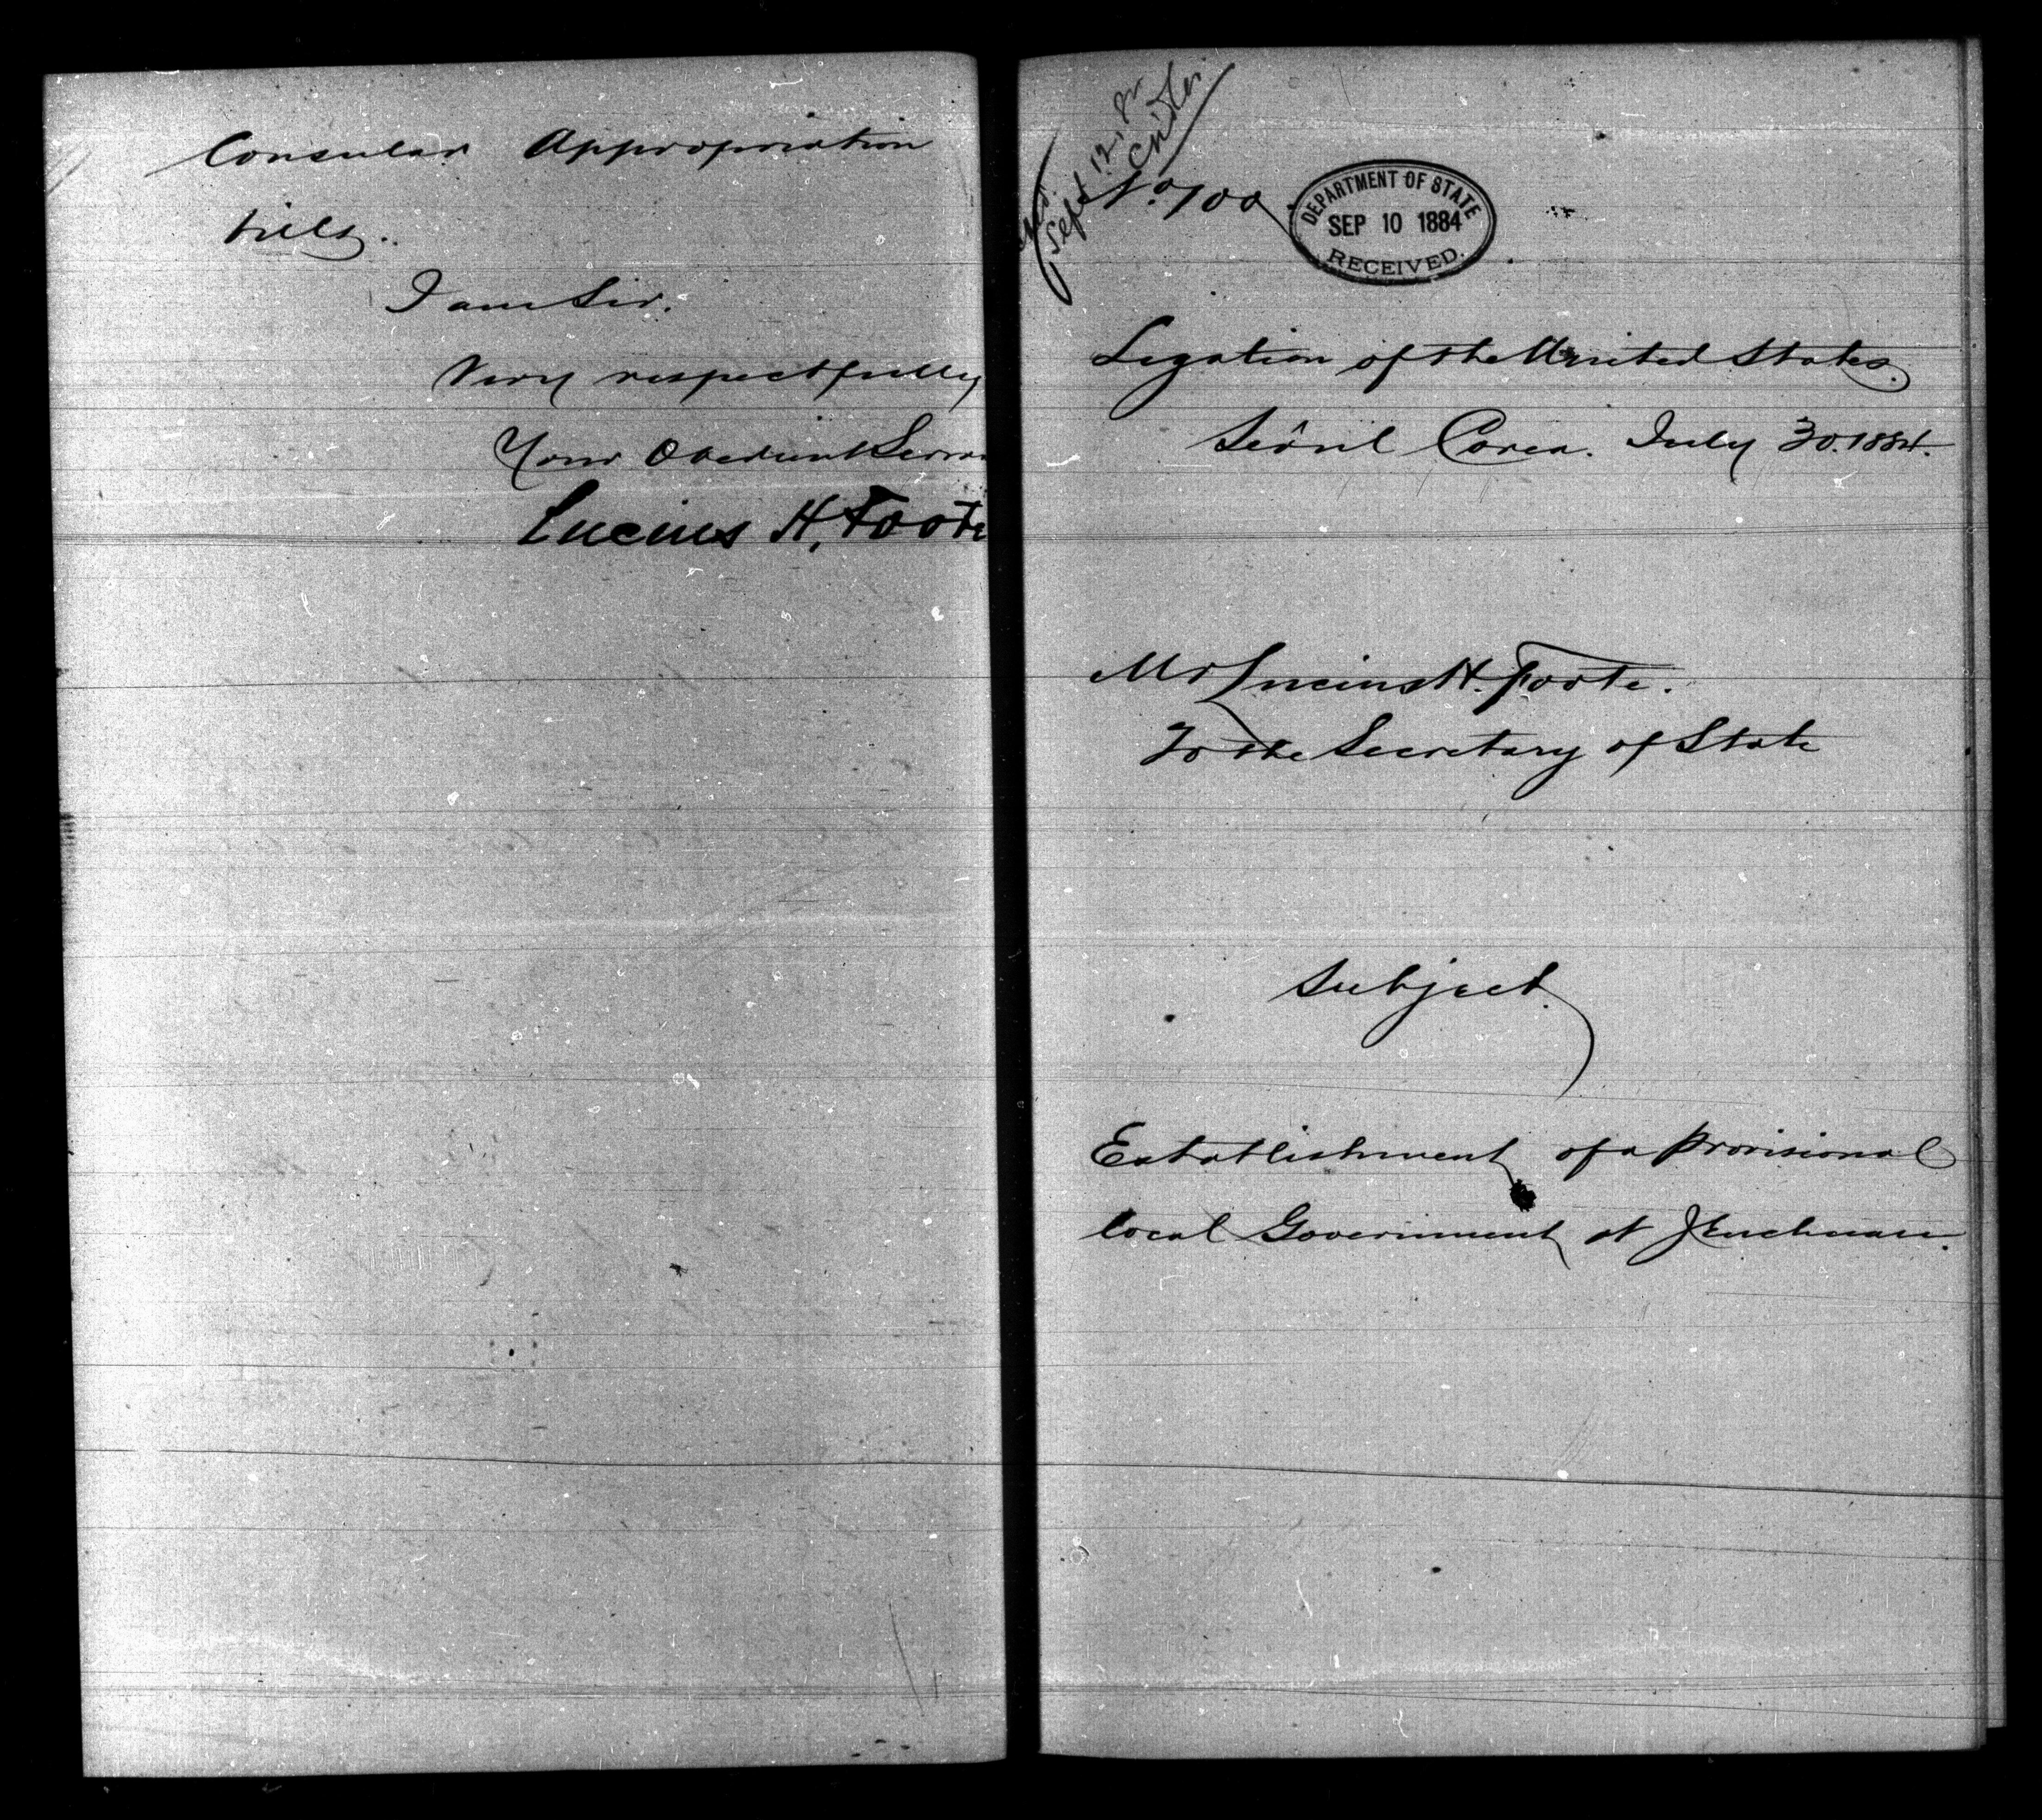 Consular Appropriation
bills.
I am Sir.
Very respectfully
Your Obedient Serva
Lucius H. Foote
Sept 12,
No. 100
DEPARTMENT OF STATE
SEP 10 1884
RECEIVED.
Legation of the United States.
Seôul Corea. July 30. 1884.
Mr Lucius H. Foote.
To the Secretary of State
Subject.
Establishment of a provisional
local Government at Jenchuan.